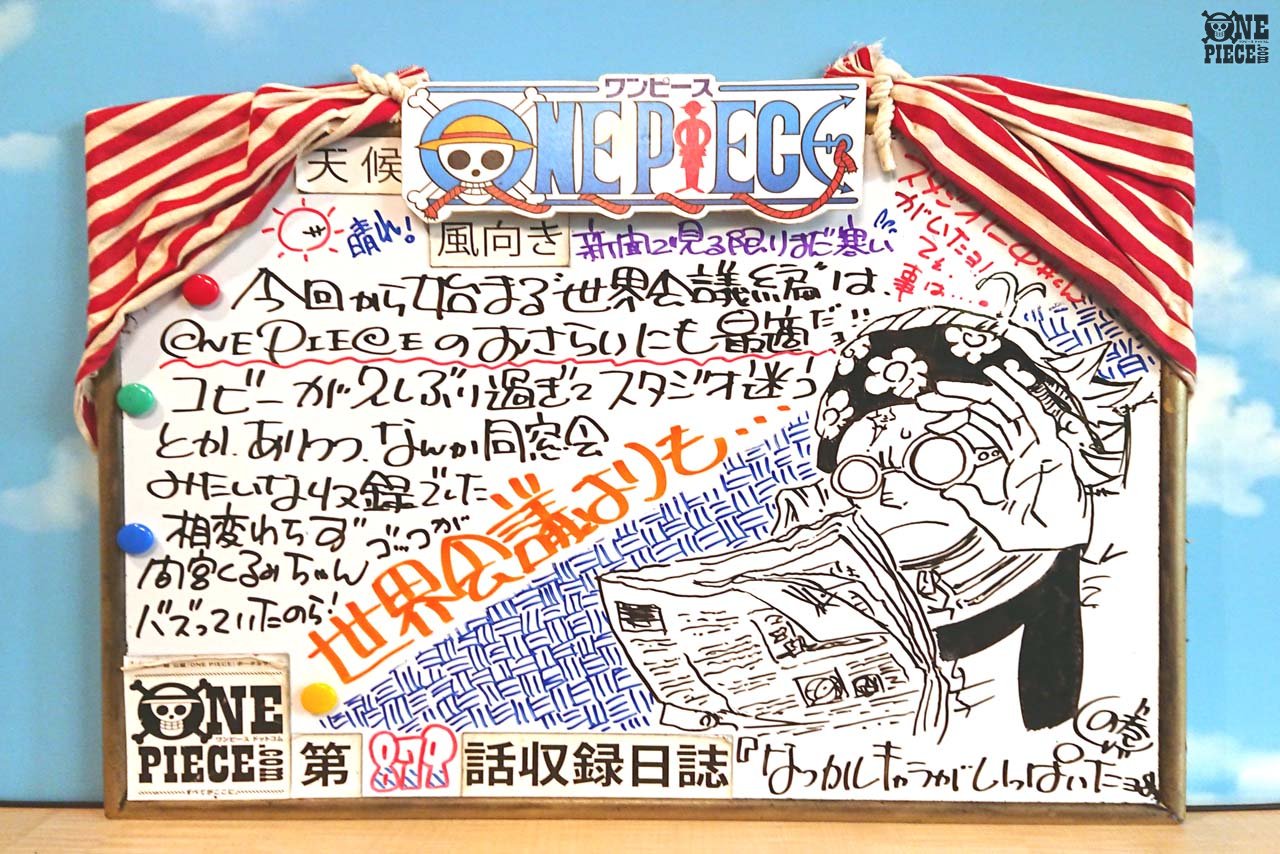 ONE PIECE.com
ワンピース ドットコム
ワンピース
ONE PIECE
天候
晴れ!
風向き
新宙で見る限りまだ寒い
がいたョ!
今回から始まる世界会議編は、
ONE PIECEのおさらいにも最適だョ
コビーが久しぶり過ぎてスタジオ迷う
とか、ありつつ、なんか同窓会
みたいな収録でした
相変わらず ゴッコが
間宮くるみちゃん
バズっていたのら!
世界会議よりも…
ONE
PIECE.com
ワンピース ドットコム
すべてがここに
第879話収録日誌
『なつかしキャラがいっぱいだョ